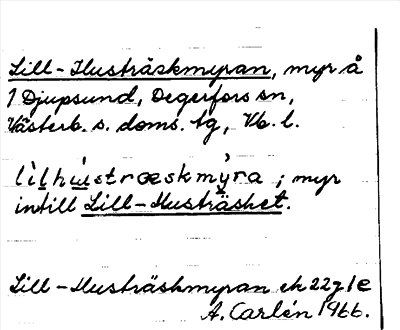 Lill-Husträskmyran, myr å
1 Djupsund, Degerfors sn,
Västerb. s. doms. tg, Vb. l.
lìlhústræskmỳra ; myr
intill Lill-Husträsket.
Lill-Husträskmyran ek 22g1e
A. Carlén 1966.